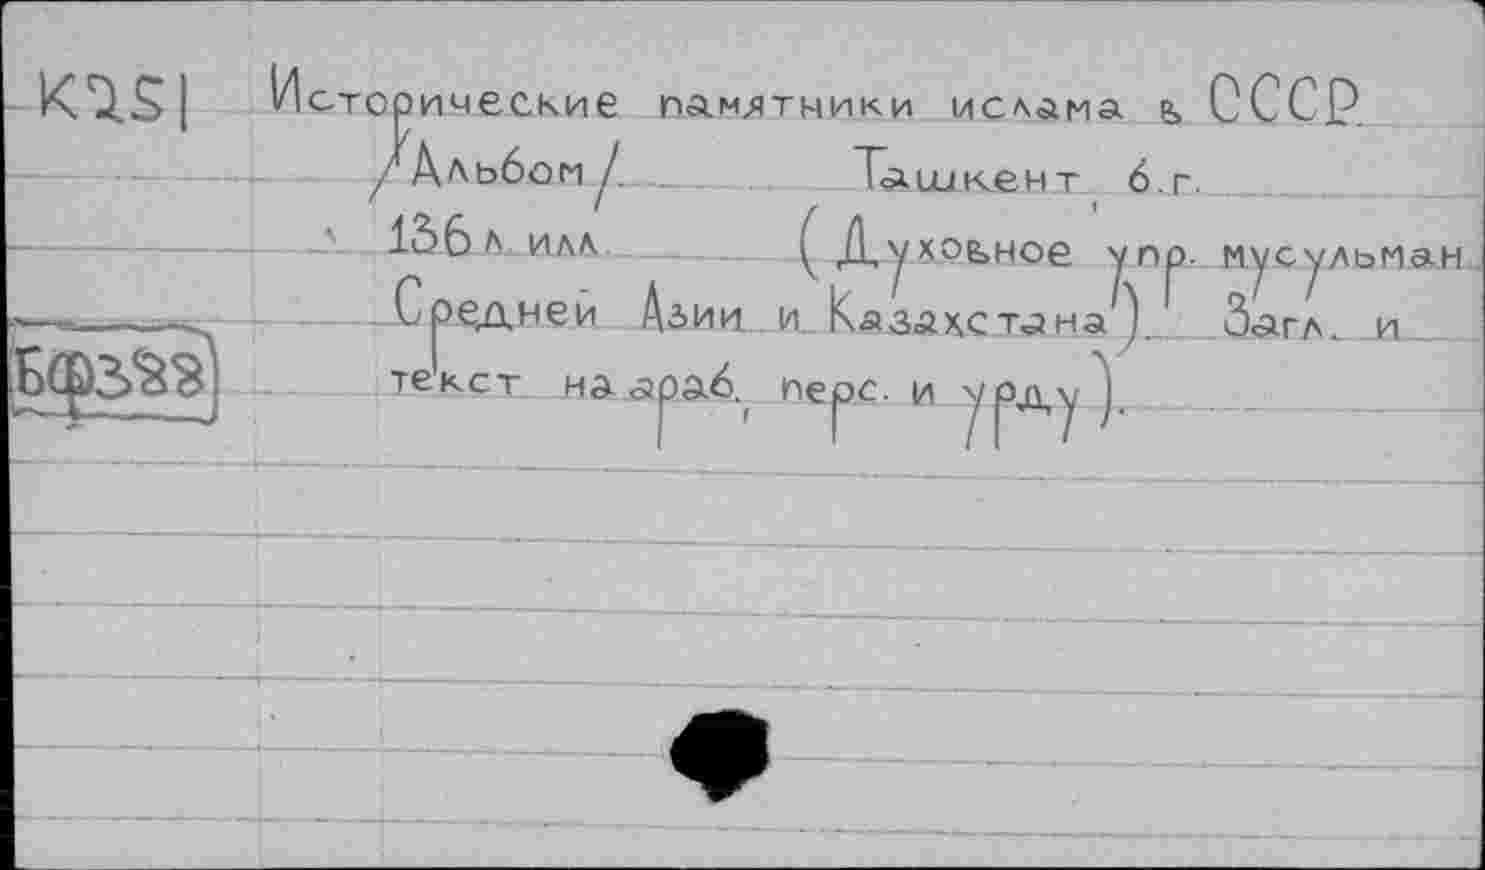 К2S| Исторические памятники ислама в СССР.
/Альбом/. Ташкент б.г.
136 л илл. (Духовное упр. мусульман
Средней Азии и Казахстана). Загл. и
БФ388 текст на араб., перс. и урду).